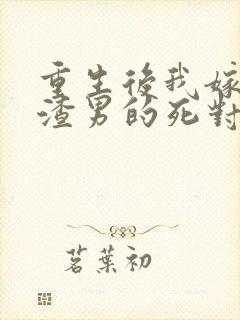 重生後我嫁
渣男的死對
茗葉初